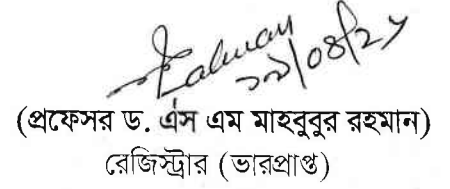 Rahman
২৯/০৪/২১
(প্রফেসর ড. এস এম মাহবুবুর রহমান)
রেজিস্ট্রার (ভারপ্রাপ্ত)